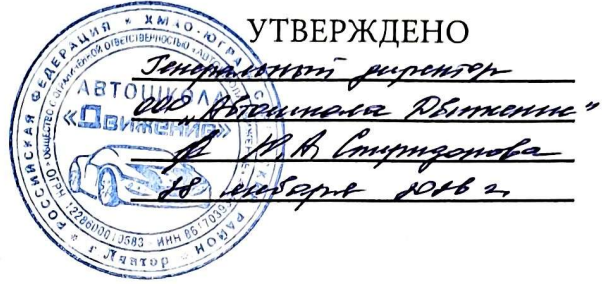 УТВЕРЖДЕНО
Генеральный директор
ООО „Автошкола Движение"
Спиридонова
28 января 2026 г.
РОССИЙСКАЯ ФЕДЕРАЦИЯ * ХМАО-ЮГРА
РАЙОН * г Лянтор *
ОБЩЕСТВО С ОГРАНИЧЕННОЙ ОТВЕТСТВЕННОСТЬЮ
ИНН
АВТОШКОЛА
«Движение»